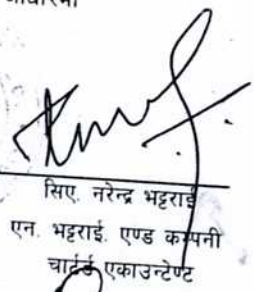 सिए. नरेन्द्र भट्टराई
एन. भट्टराई. एण्ड कम्पनी
चार्टर्ड एकाउन्टेण्ट